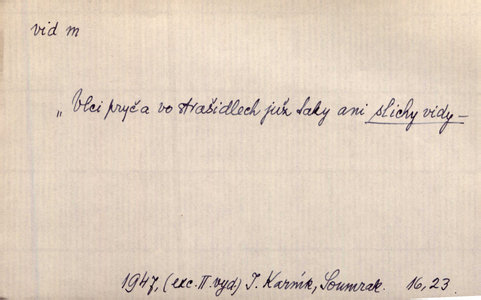 vid m
„Vlci pryč a vo strašidlech již taky ani slichy vidy –
1947, (exc. II. vyd) J. Karník, Soumrak. 16, 23.